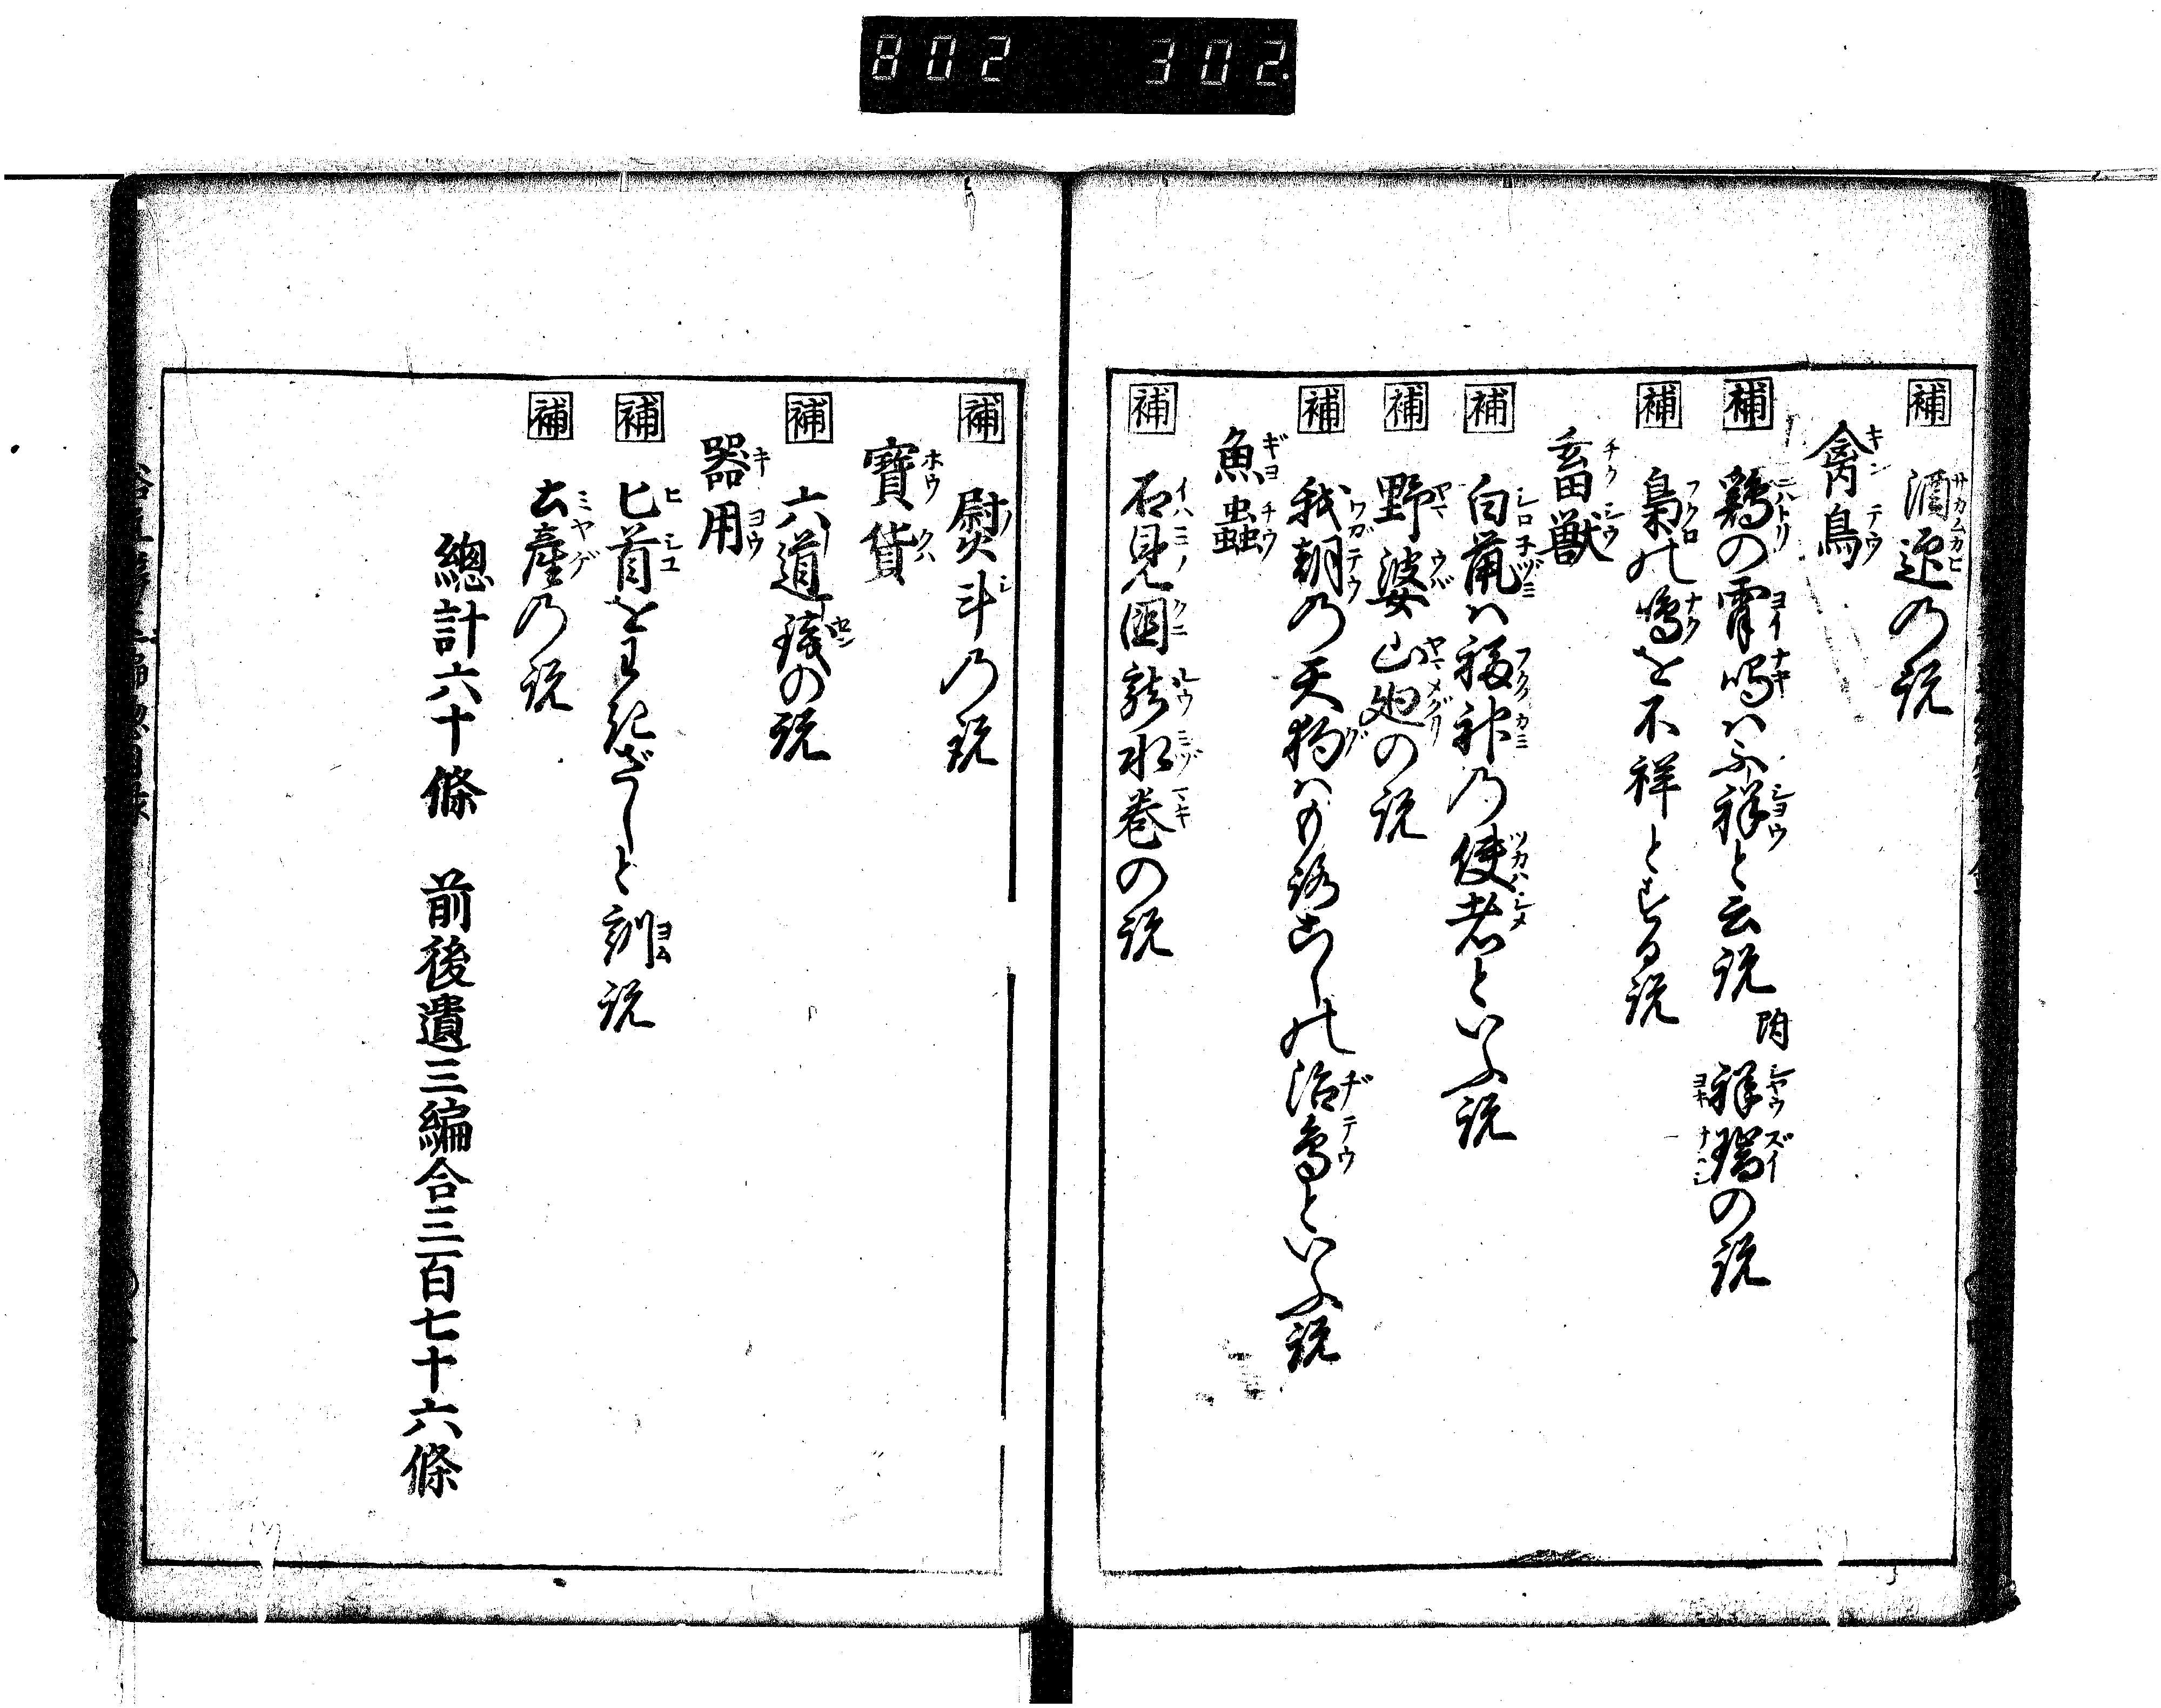 802 302.
補 酒迎の説
禽鳥
補 鶏の宵鳴ハ不祥と云説 附 祥瑞の説
補 梟の鳴を不祥とする説
畜獣
補 白鼠ハ福神の使者といふ説
補 野婆山廻の説
補 我朝の天狗ハもろこしの治鳥といふ説
魚蟲
補 石見国龍水巻の説
補 熨斗の説
寶貨
補 六道銭の説
器用
補 匕首をわきざしと訓説
補 土産の説
總計六十條 前後遺三編合三百七十六條